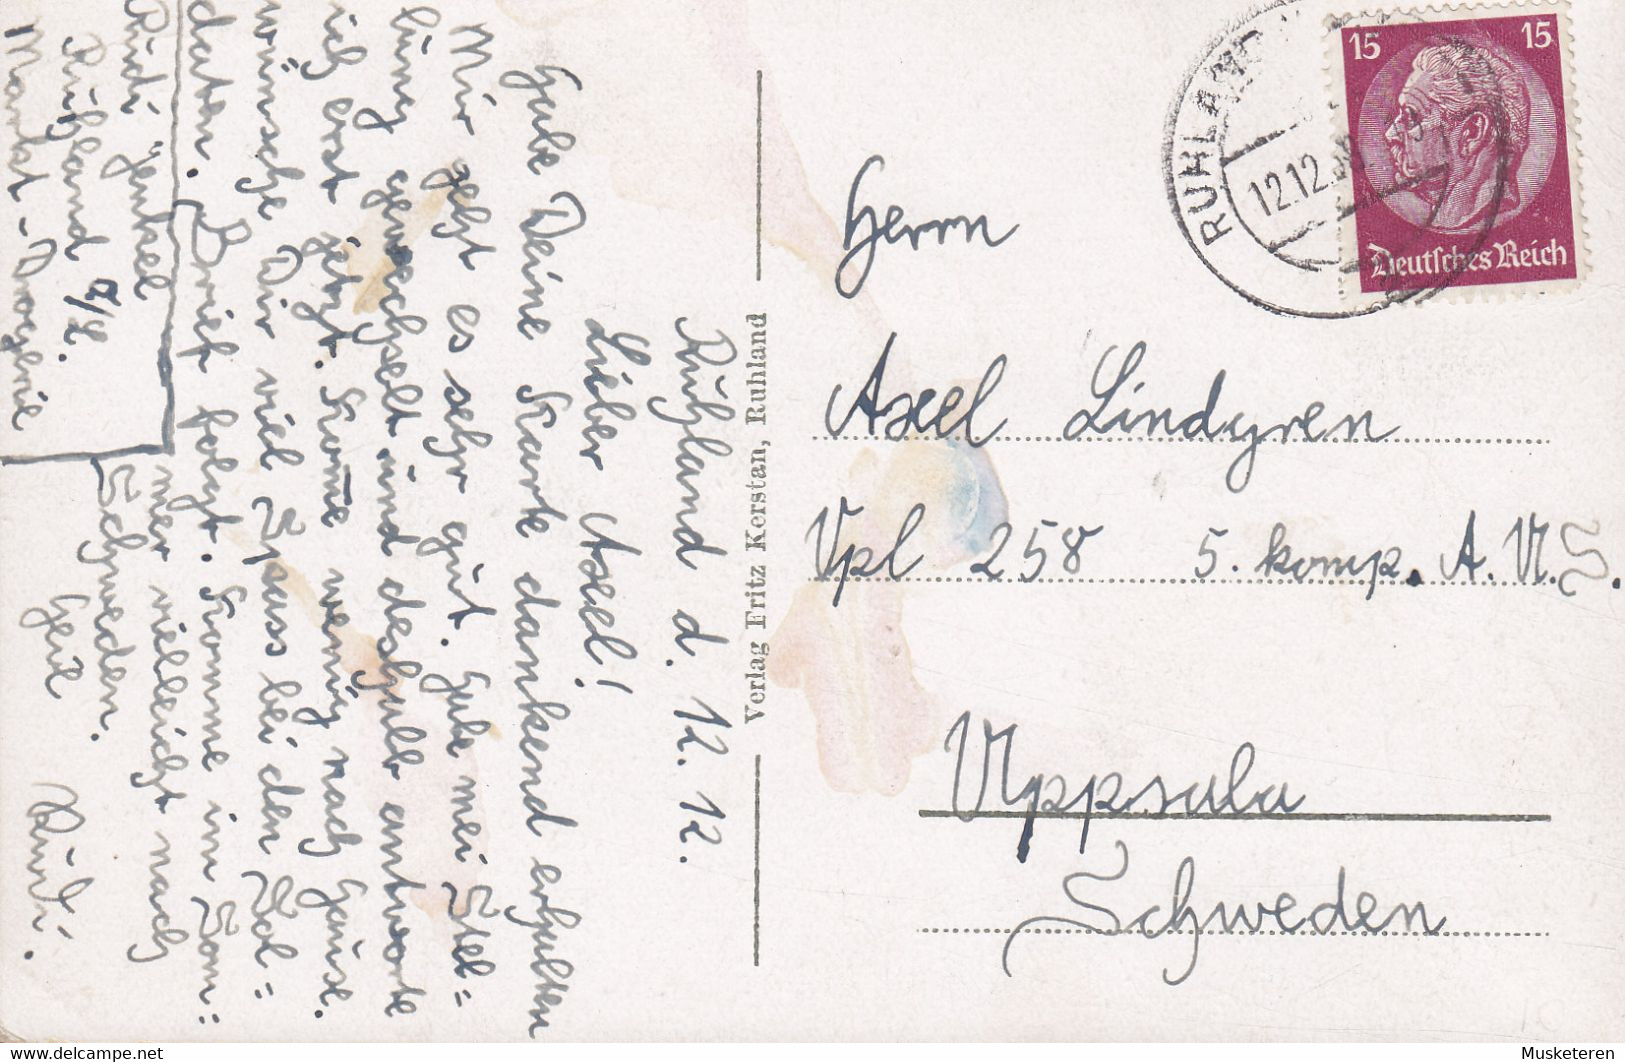 Ruhland d. 12. 12.
Lieber Axel!
Habe Deine Karte dankend erhalten
Mir geht es sehr gut. Habe mei Stel=
lung gewechselt und deshalb antworte
ich erst jetzt. Kome wenig nach Hause.
wünsche Dir viel Spass bei den Sol=
daten. Brief folgt. Komme im Som=
mer vielleicht nach
Schweden.
Heil
Rudi.
Rudi Jenkel
Ruhland O/L.
Markt-Drogerie
Verlag Fritz Kerstan, Ruhland
RUHLAND
12.12.
15 15
Deutsches Reich
Herrn
Axel Lindgren
Vpl 258 5. komp. A. U. S.
Uppsala
Schweden
delcampe.net
Musketeren